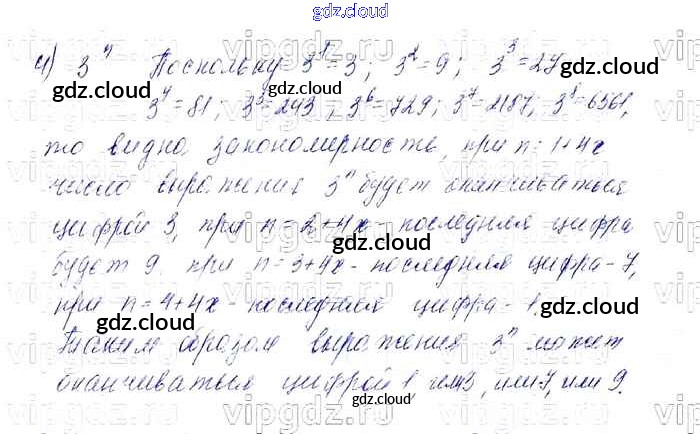 gdz.cloud
4) 3ⁿ Поскольку 3¹=3; 3²=9; 3³=27
3⁴=81; 3⁵=243; 3⁶=729; 3⁷=2187; 3⁸=6561,
то видна закономерность, при n=1+4x
число выражения 3ⁿ будет оканчиваться
цифрой 3, при n=2+4x - последняя цифра
будет 9. при n=3+4x - последняя цифра - 7,
при n=4+4x - последняя цифра - 1.
Таким образом выражения 3ⁿ может
оканчиваться цифрой 1, или 3, или 7, или 9.